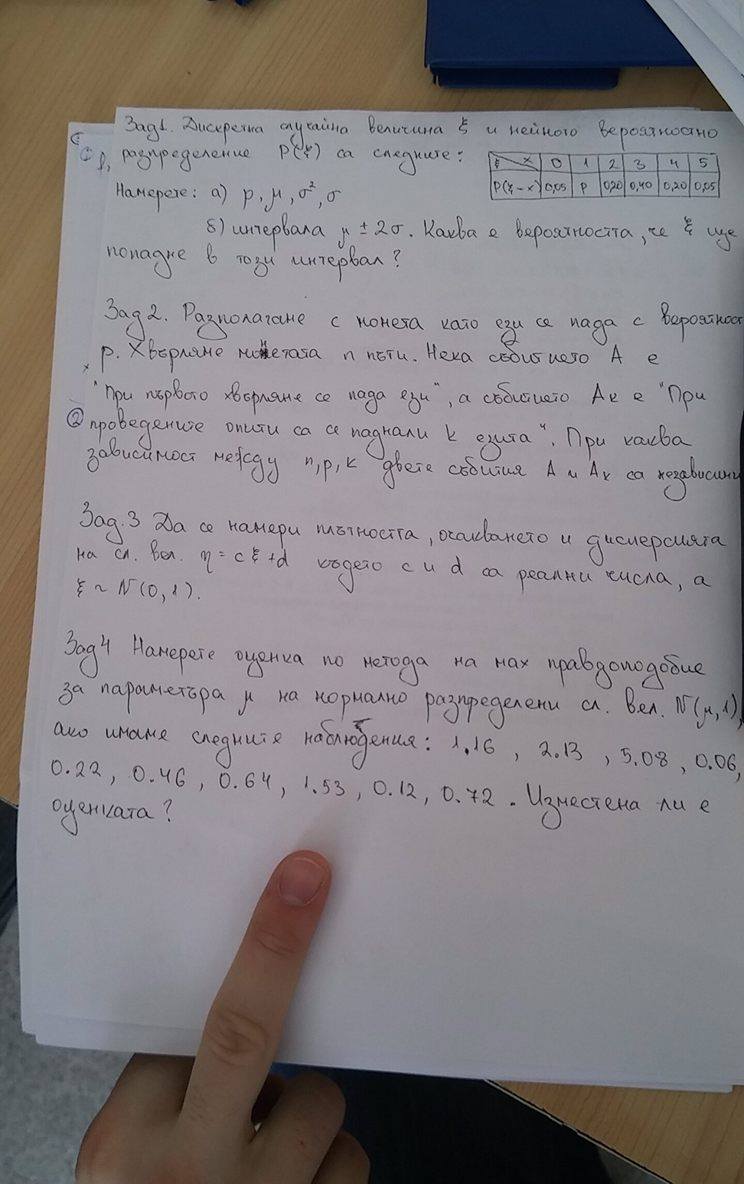 Зад1. Дискретна случайна величина ξ и нейното вероятностно
разпределение P(ξ) са следните:
ξ x 0 1 2 3 4 5
P(ξ-x) 0,05 p 0,20 0,40 0,20 0,05
Намерете: а) p, μ, σ², σ
б) интервала μ ± 2σ. Каква е вероятността, че ξ ще
попадне в този интервал?
Зад 2. Разполагаме с монета като ези се пада с вероятност
p. Хвърляме монетата n пъти. Нека събитието A е
"При първото хвърляне се пада ези", а събитието Aк е "При
2 проведените опити са се паднали k езита". При каква
зависимост между n, p, k двете събития A и Aк са независими
Зад.3 Да се намери плътността, очакването и дисперсията
на сл. вел. η = cξ+d където c и d са реални числа, а
ξ ~ N(0,1).
Зад4 Намерете оценка по метода на мах правдоподобие
за параметъра μ на нормално разпределени сл. вел. N(μ,1),
ако имаме следните наблюдения: 1.16, 2.13, 5.08, 0.06,
0.22, 0.46, 0.64, 1.53, 0.12, 0.72. Изместена ли е
оценката?